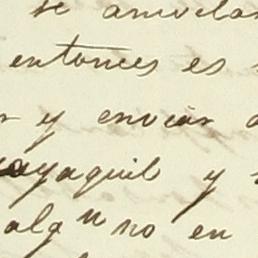 se
entonces es
y enviar
ayaquil y
alguno en